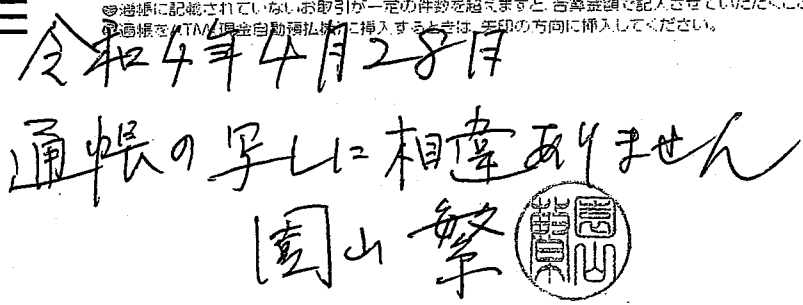 通帳に記載されていないお取引が一定の件数を超えますと、合算金額で記入させていただくこ
通帳をATM(現金自動預払機)に挿入するときは、矢印の方向に挿入してください。
令和4年4月28日
通帳の写しに相違ありません
園山 繁